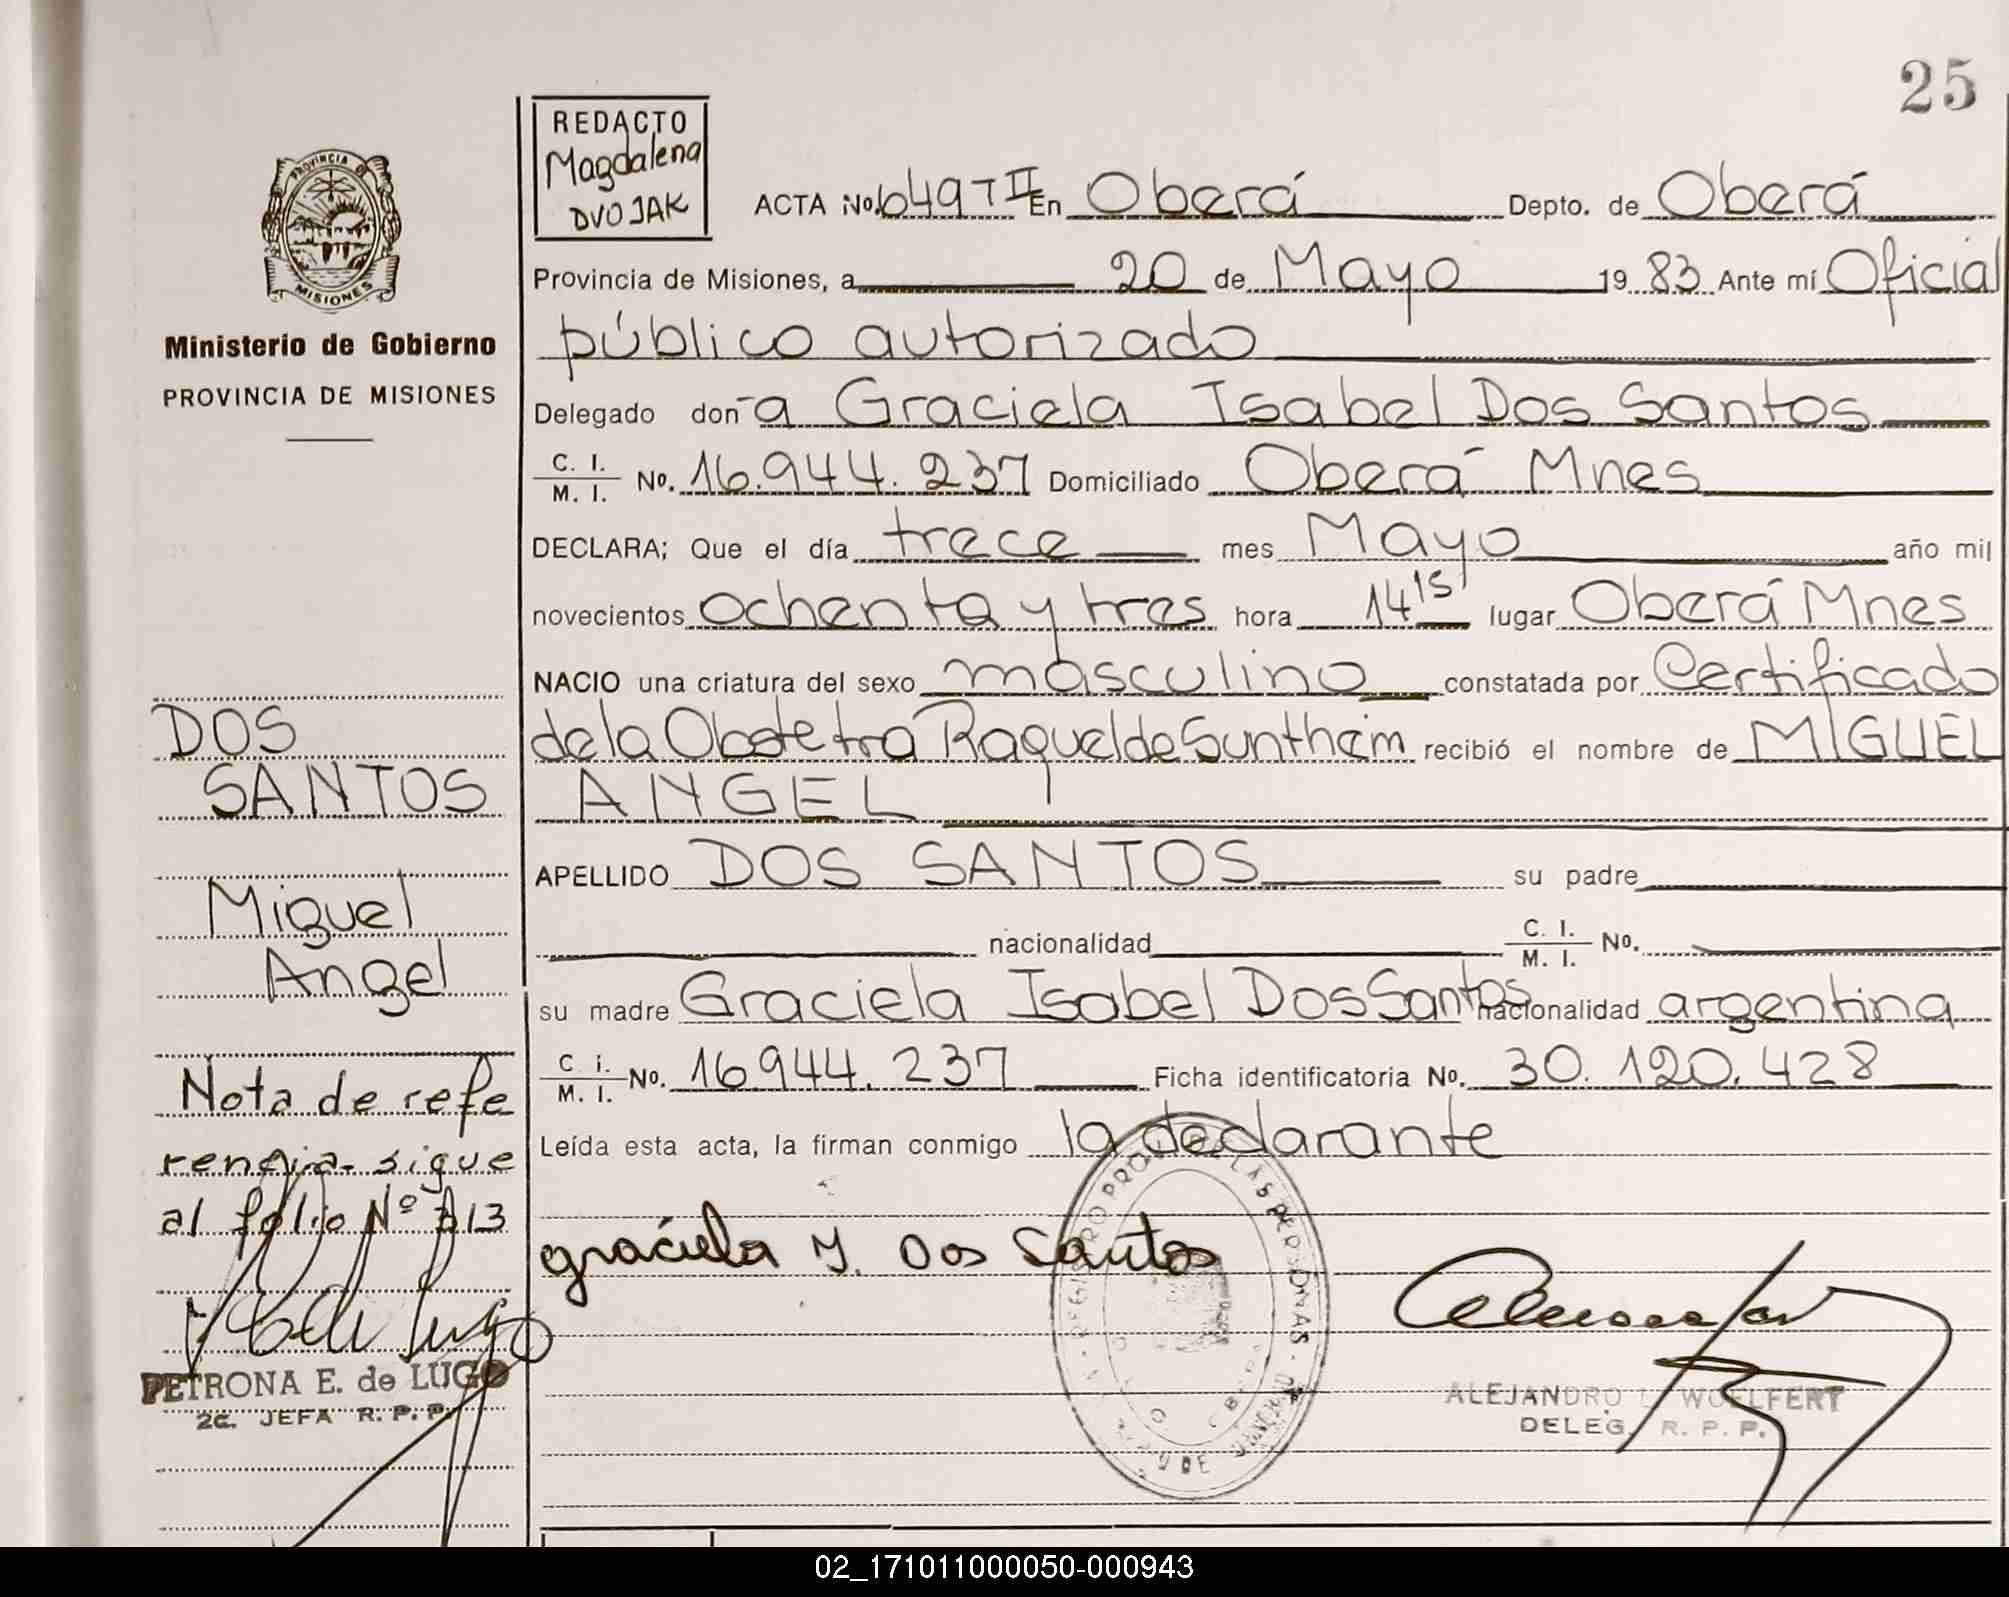 25
REDACTO
Magdalena
DVOJAK
PROVINCIA DE
MISIONES
Ministerio de Gobierno
PROVINCIA DE MISIONES
ACTA No. 649 T II En Oberá Depto. de Oberá
Provincia de Misiones, a 20 de Mayo 19 83 Ante mí Oficial
público autorizado
Delegado don-a Graciela Isabel Dos Santos
C. I. / M. I. No. 16.944.237 Domiciliado Oberá Mnes
DECLARA; Que el día trece mes Mayo año mil
novecientos ochenta y tres hora 14 15' lugar Oberá Mnes
NACIO una criatura del sexo masculino constatada por Certificado
de la Obstetra Raquel de Suntheim recibió el nombre de MIGUEL
ANGEL
APELLIDO DOS SANTOS su padre
nacionalidad C. I. / M. I. No.
su madre Graciela Isabel Dos Santos nacionalidad argentina
C. I. / M. I. No. 16944.237 Ficha identificatoria No. 30.120.428
Leída esta acta, la firman conmigo la declarante
graciela Y. Dos Santos
ALEJANDRO L. WOELFERT
DELEG. R. P. P.
DOS
SANTOS
Miguel
Angel
Nota de refe
rencia sigue
al folio Nº 213
PETRONA E. de LUGO
2a. JEFA R. P. P.
02_171011000050-000943